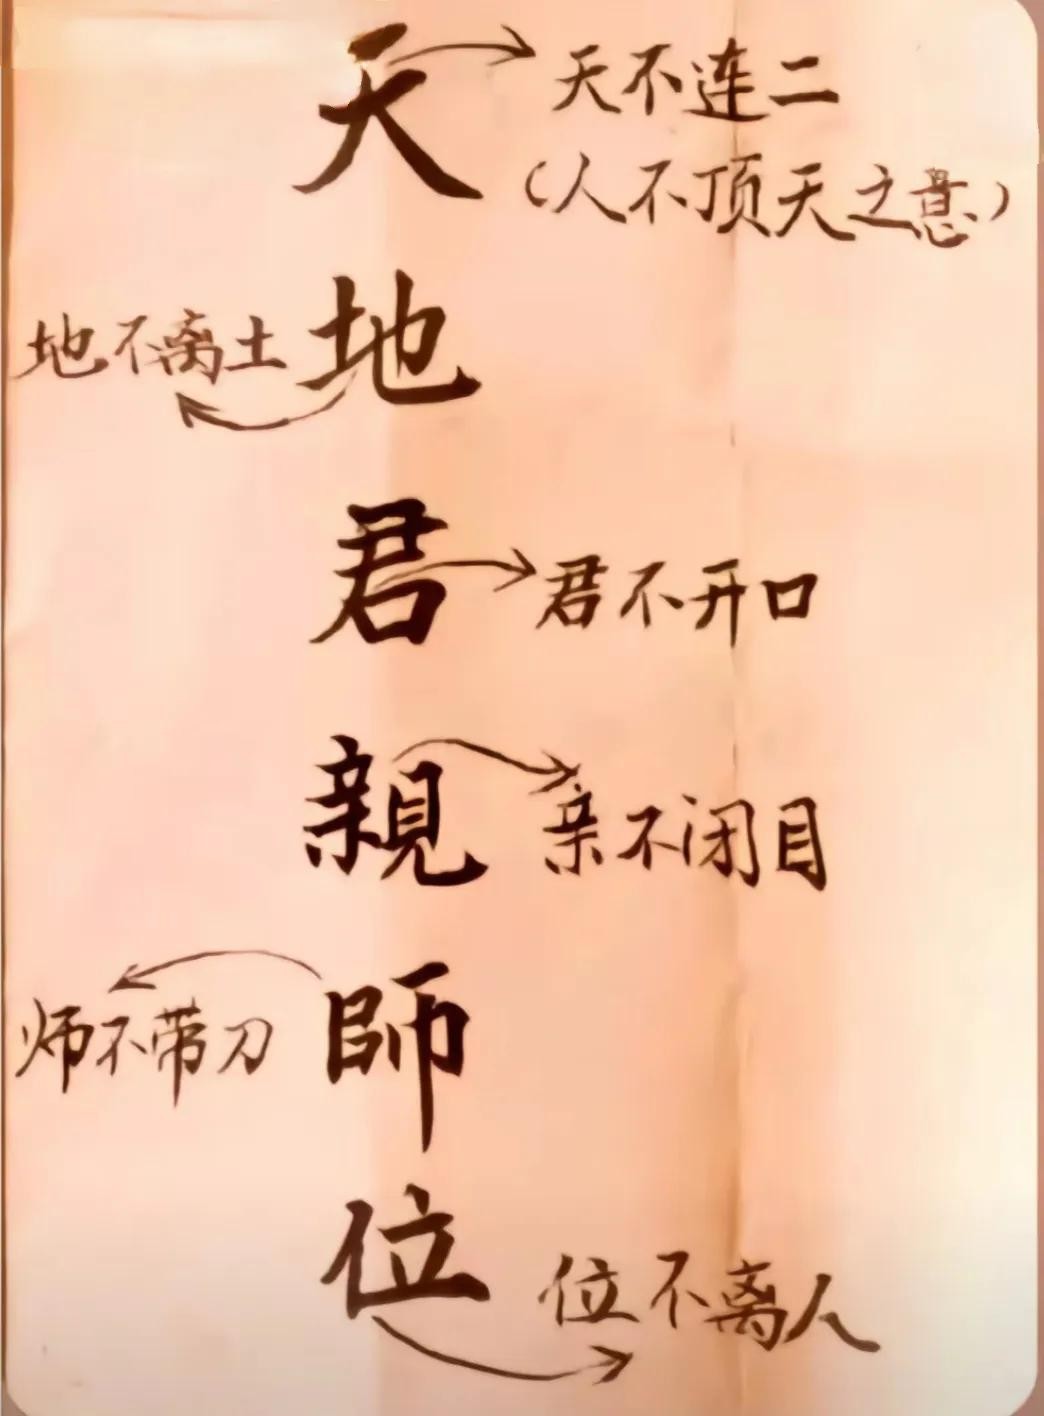 天
天不连二
(人不顶天之意)
地
地不离土
君
君不开口
親
亲不闭目
師
师不带刀
位
位不离人